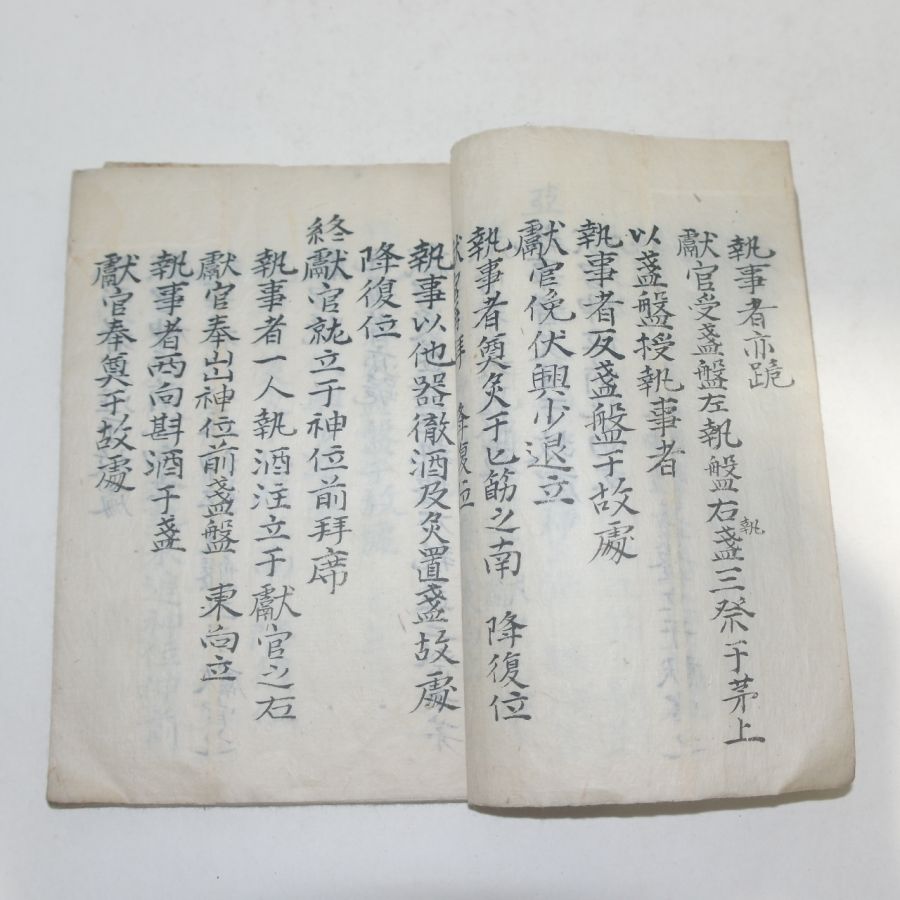 執事者亦跪
獻官受盞盤左執盤右執盞三祭于茅上
以盞盤授執事者
執事者反盞盤于故處
獻官俛伏興少退立
執事者奠炙于匕筋之南 降復位
拜 降復位
執事以他器徹酒及炙置盞故處
降復位
終獻官就立于神位前拜席
執事者一人執酒注立于獻官之右
獻官奉山神位前盞盤 東向立
執事者西向斟酒于盞
獻官奉奠于故處